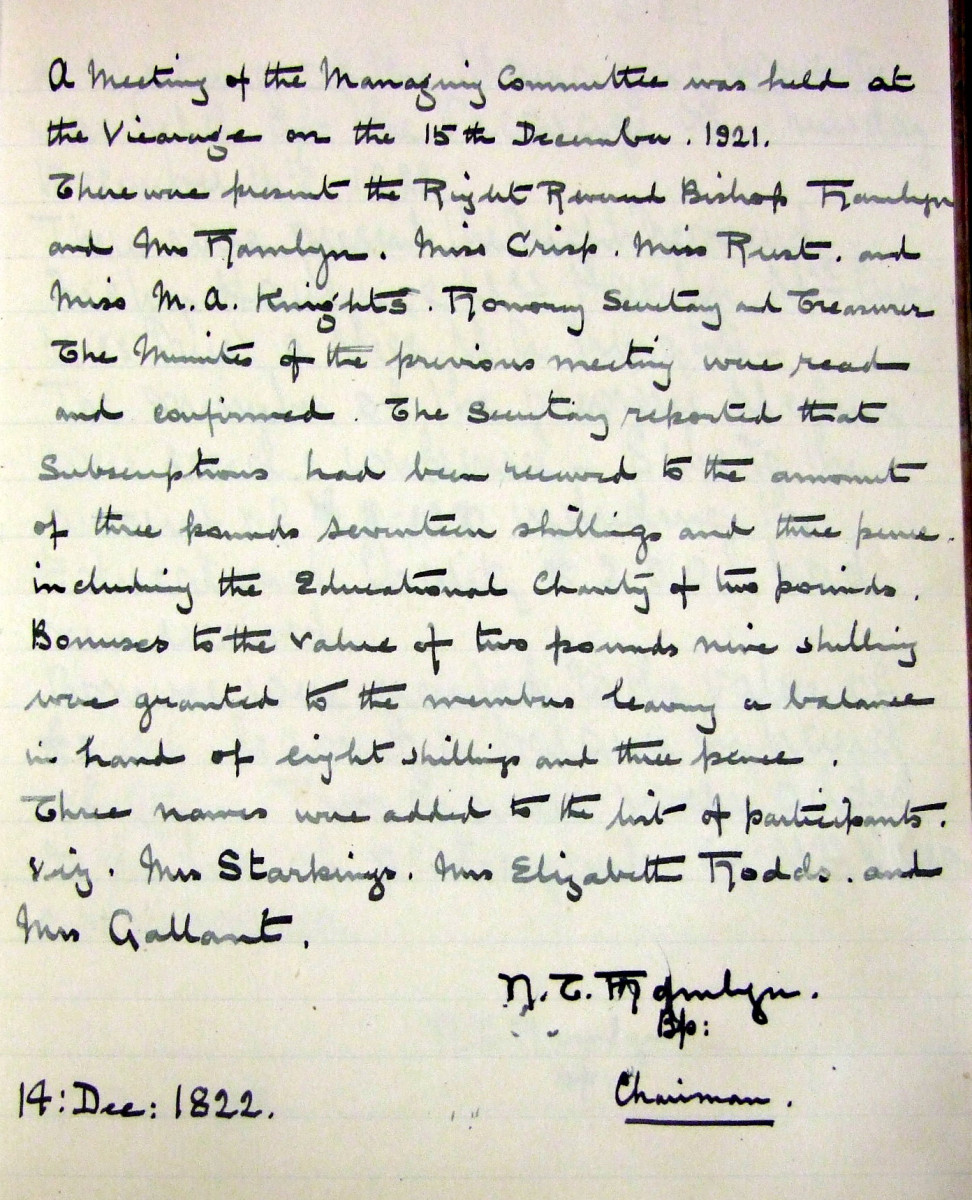 A Meeting of the Managing Committee was held at
the Vicarage on the 15th December. 1921.
There were present the Right Reverend Bishop Hamlyn
and Mrs Hamlyn. Miss Crisp. Miss Rust. and
Miss M. A. Knights. Honorary Secretary and Treasurer
The Minutes of the previous meeting were read
and confirmed. The Secretary reported that
Subscriptions had been received to the amount
of three pounds seventeen shillings and three pence.
including the Educational Charity of two pounds.
Bonuses to the value of two pounds nine shilling
were granted to the members leaving a balance
in hand of eight shillings and three pence.
Three names were added to the list of participants.
viz. Mrs Starkings. Mrs Elizabeth Hodds. and
Mrs Gallant.
N. T. Hamlyn.
Bp:
Chairman.
14: Dec: 1822.